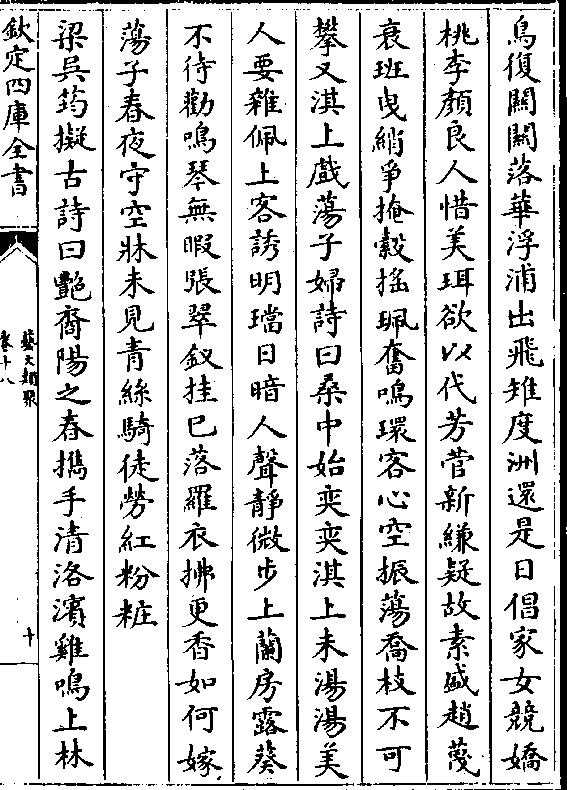 鳥復關關落華浮浦出飛雉度洲還是日倡家女競嬌
桃李顏良人惜美珥欲以代芳菅新縑疑故素盛趙蔑
衰班曳綃爭掩縠搖珮奮鳴環客心空振蕩喬枝不可
攀又淇上戲蕩子婦詩曰桑中始奕奕淇上未湯湯美
人要雜佩上客誘明璫日暗人聲靜微步上蘭房露葵
不待勸鳴琴無暇張翠釵挂已落羅衣拂更香如何嫁
蕩子春夜守空牀未見青絲騎徒勞紅粉粧
梁吳筠擬古詩曰艷裔陽之春擕手清洛濱雞鳴上林
欽定四庫全書
藝文類聚
卷十八
十